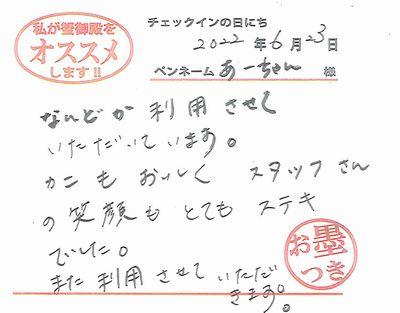 私が蟹御殿を
オススメ
します!!
チェックインの日にち
2022年6月23日
ペンネーム あーちゃん 様
なんどか 利用 させて
いただいています。
カニも おいしく スタッフさん
の笑顔も とても ステキ
でした。
また 利用 させて いただ
きます。
お墨
つき